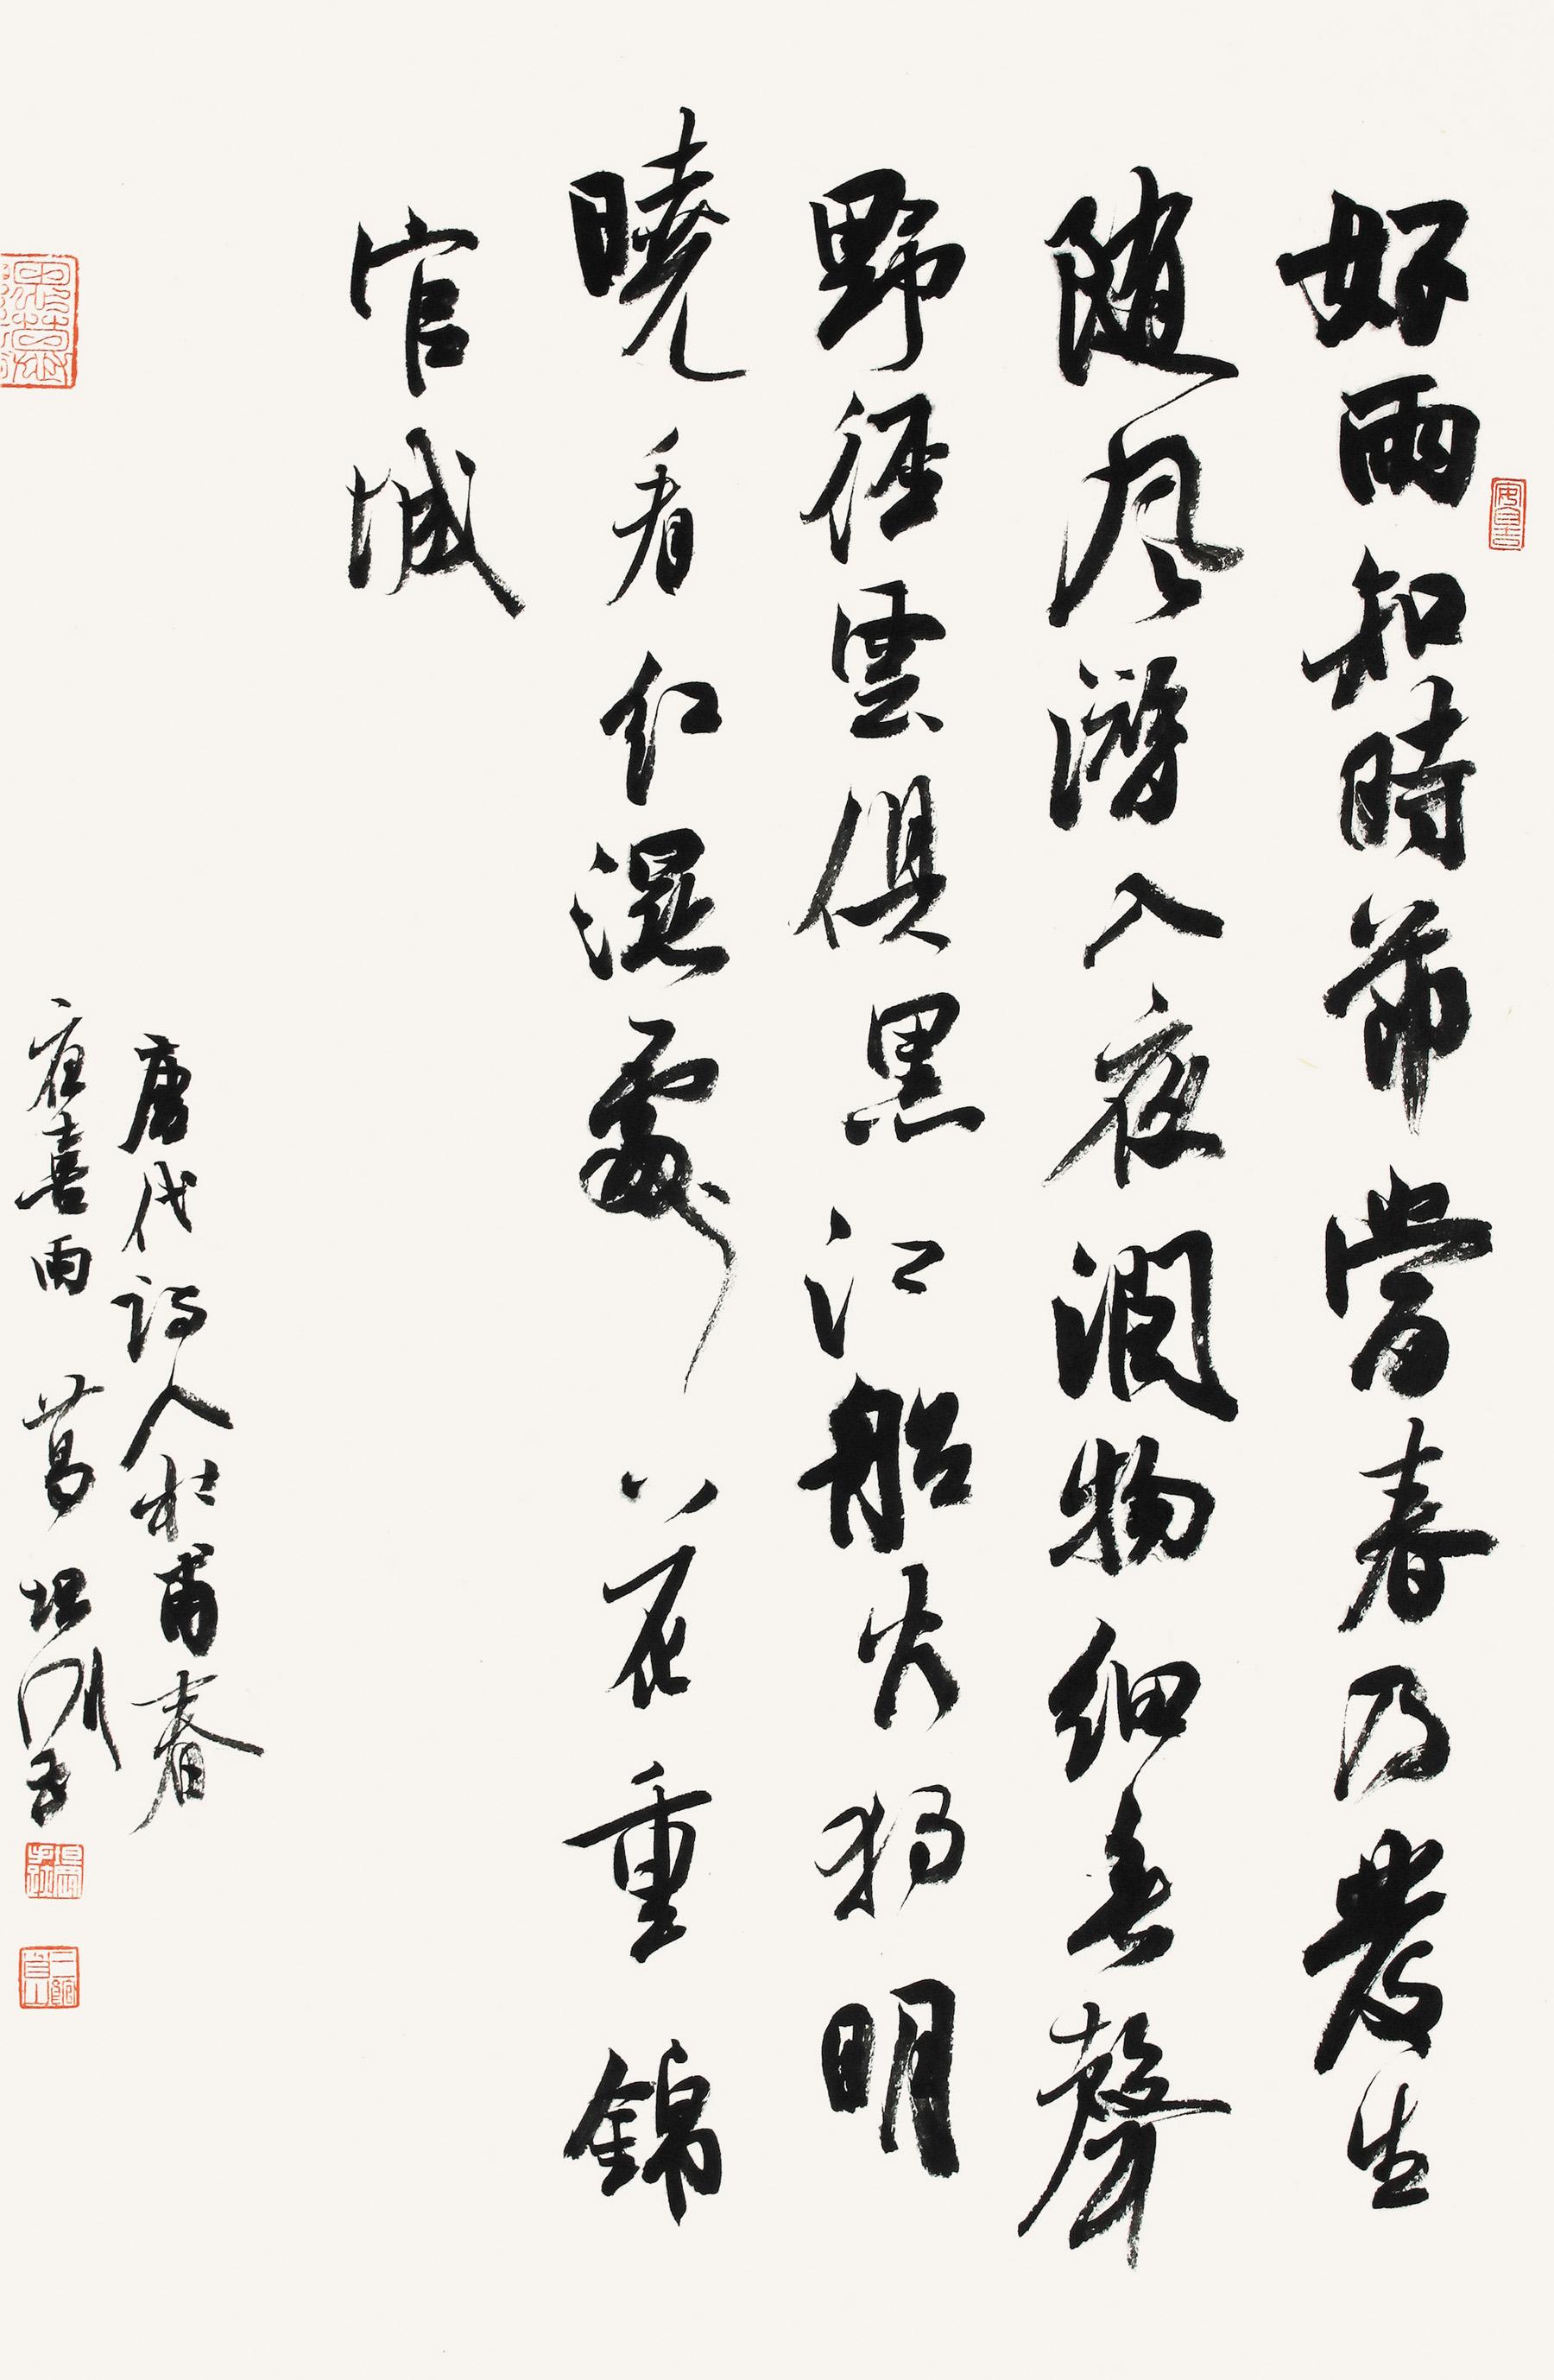 好雨知時節當春乃發生
随風潛入夜潤物細無聲
野徑雲俱黑江船火獨明
曉看紅濕處花重錦
官城
唐代詩人杜甫春
夜喜雨